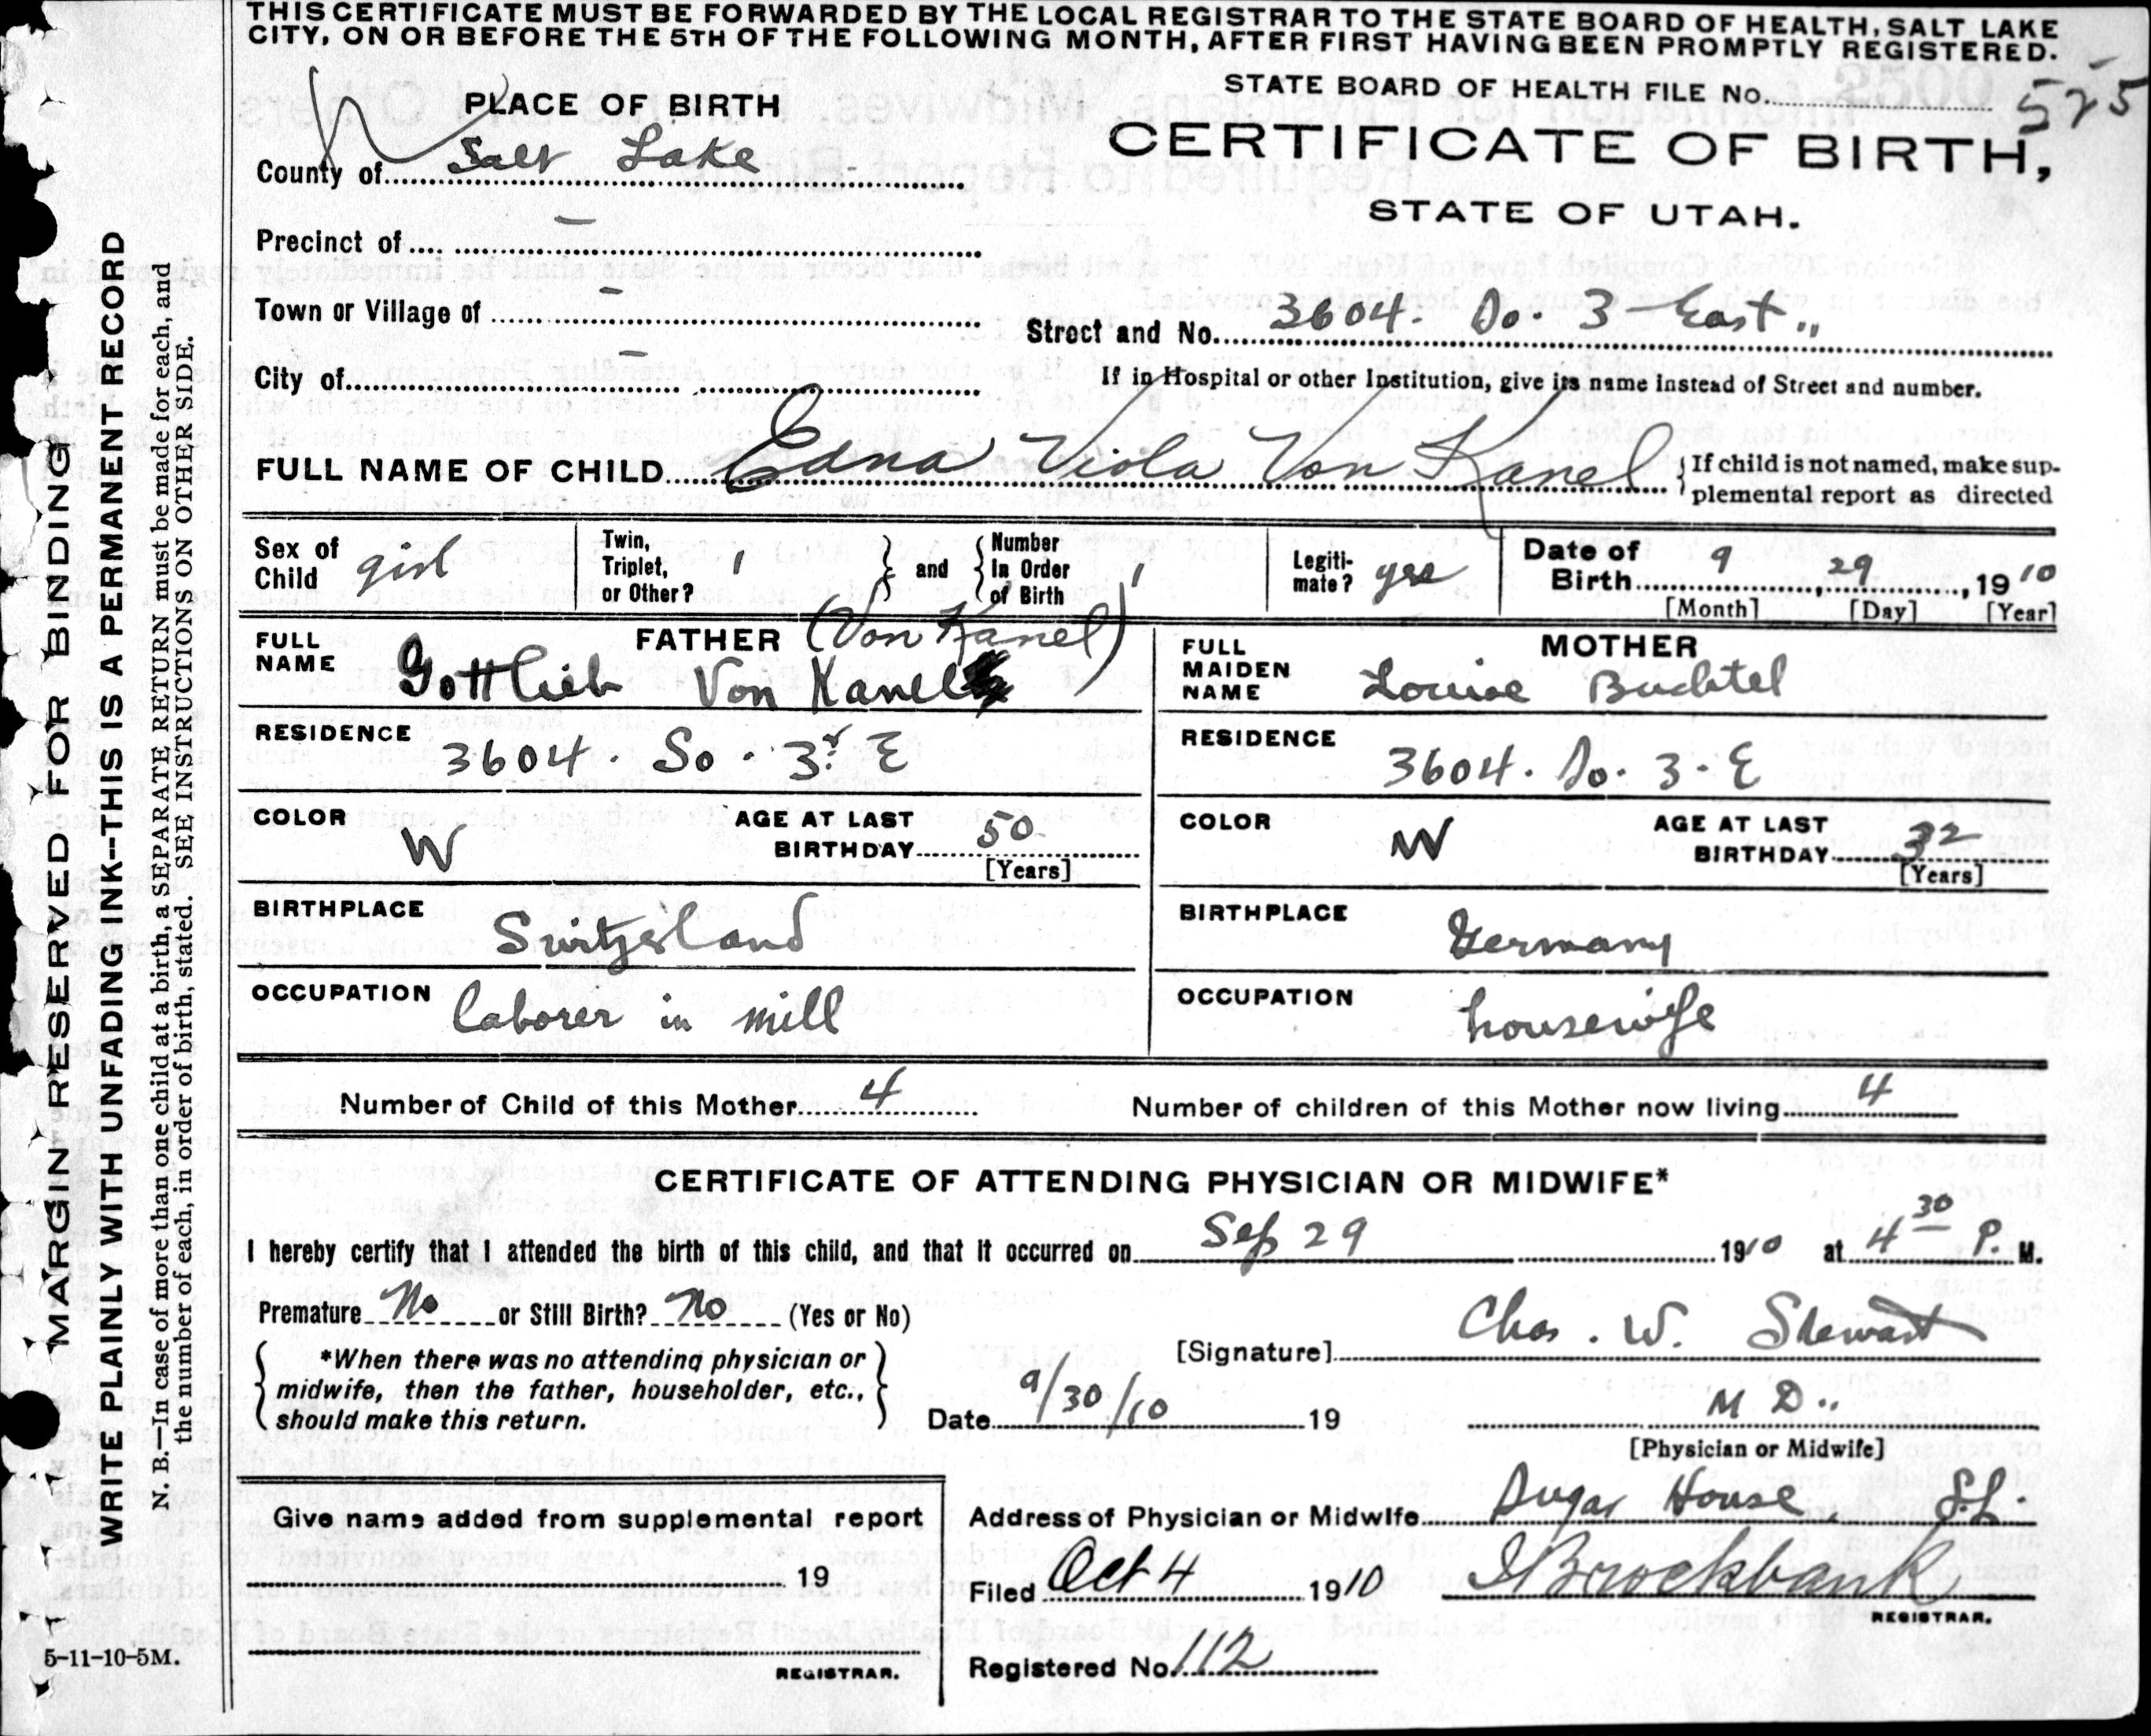 THIS CERTIFICATE MUST BE FORWARDED BY THE LOCAL REGISTRAR TO THE STATE BOARD OF HEALTH, SALT LAKE
CITY, ON OR BEFORE THE 5TH OF THE FOLLOWING MONTH, AFTER FIRST HAVING BEEN PROMPTLY REGISTERED.
STATE BOARD OF HEALTH FILE No. 525
PLACE OF BIRTH
CERTIFICATE OF BIRTH,
STATE OF UTAH.
County of Salt Lake
Precinct of —
Town or Village of —
Street and No. 3604. So. 3 East
City of —
If in Hospital or other Institution, give its name instead of Street and number.
FULL NAME OF CHILD Edna Viola Von Kanel
{If child is not named, make sup-
plemental report as directed
Sex of Child girl
Twin, Triplet, or Other? 1 } and { Number In Order of Birth 1
Legiti-mate? yes
Date of Birth 9, 29, 1910
[Month] [Day] [Year]
FATHER (Von Kanel)
FULL NAME Gottlieb Von Kanel
RESIDENCE 3604. So. 3r. E
COLOR W
AGE AT LAST BIRTHDAY 50
[Years]
BIRTHPLACE Switzerland
OCCUPATION laborer in mill
MOTHER
FULL MAIDEN NAME Louise Buchtel
RESIDENCE 3604. So. 3. E
COLOR W
AGE AT LAST BIRTHDAY 32
[Years]
BIRTHPLACE Germany
OCCUPATION housewife
Number of Child of this Mother 4
Number of children of this Mother now living 4
CERTIFICATE OF ATTENDING PHYSICIAN OR MIDWIFE*
I hereby certify that I attended the birth of this child, and that it occurred on Sep 29 1910 at 4 30 P. M.
Premature No or Still Birth? No (Yes or No)
{ *When there was no attending physician or
midwife, then the father, householder, etc.,
should make this return. }
[Signature] Chas. W. Stewart
Date 9/30/10 19
M D..
[Physician or Midwife]
Address of Physician or Midwife Sugar House, S.L.
Give name added from supplemental report
19
REGISTRAR.
Filed Oct 4 1910
J Brockbank
REGISTRAR.
Registered No. 112
MARGIN RESERVED FOR BINDING
WRITE PLAINLY WITH UNFADING INK--THIS IS A PERMANENT RECORD
N. B.—In case of more than one child at a birth, a SEPARATE RETURN must be made for each, and
the number of each, in order of birth, stated. SEE INSTRUCTIONS ON OTHER SIDE.
5-11-10-5M.